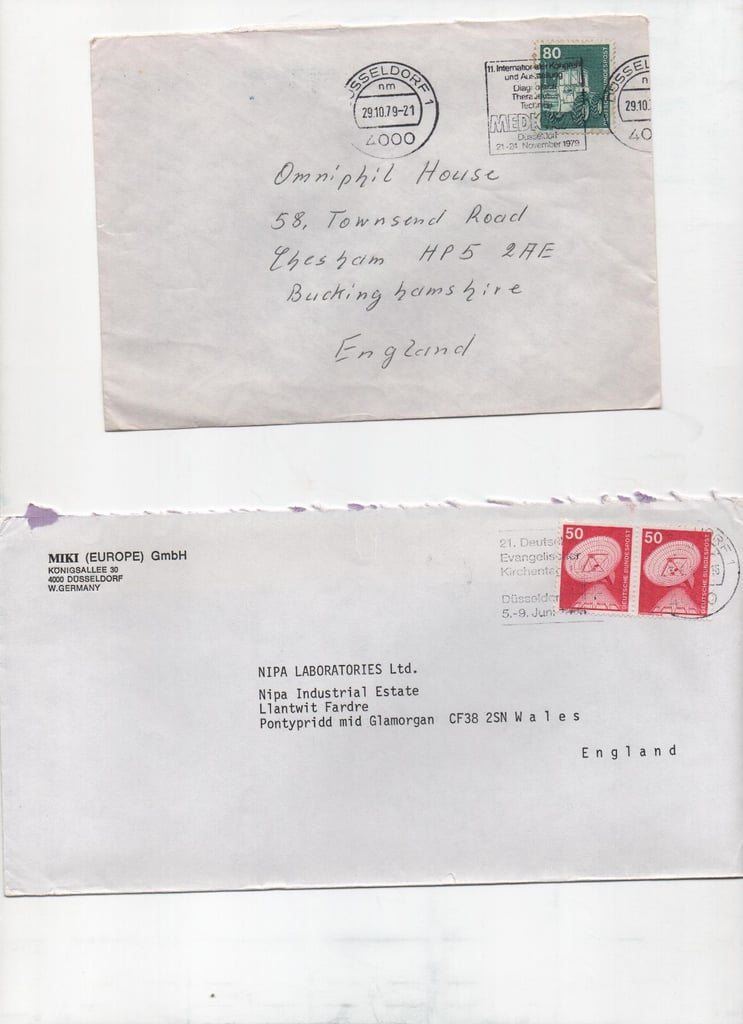 80
DEUTSCHE BUNDESPOST
DÜSSELDORF 1
nm
29.10.79-21
4000
11. Internationaler Kongreß
und Ausstellung
Technik
Düsseldorf
21-24. November 1979
DÜSSEL
29.10.
40
Omniphil House
58, Townsend Road
Chesham HP5 2AE
Buckinghamshire
England
MIKI (EUROPE) GmbH
KONIGSALLEE 30
4000 DUSSELDORF
W.GERMANY
21. Deutscher
Evangelischer
Kirchentag
Düsseldorf
5.-9. Juni
50
DEUTSCHE BUNDESPOST
50
DEUTSCHE BUNDESPOST
DORF 1
NIPA LABORATORIES Ltd.
Nipa Industrial Estate
Llantwit Fardre
Pontypridd mid Glamorgan CF38 2SN Wales
England